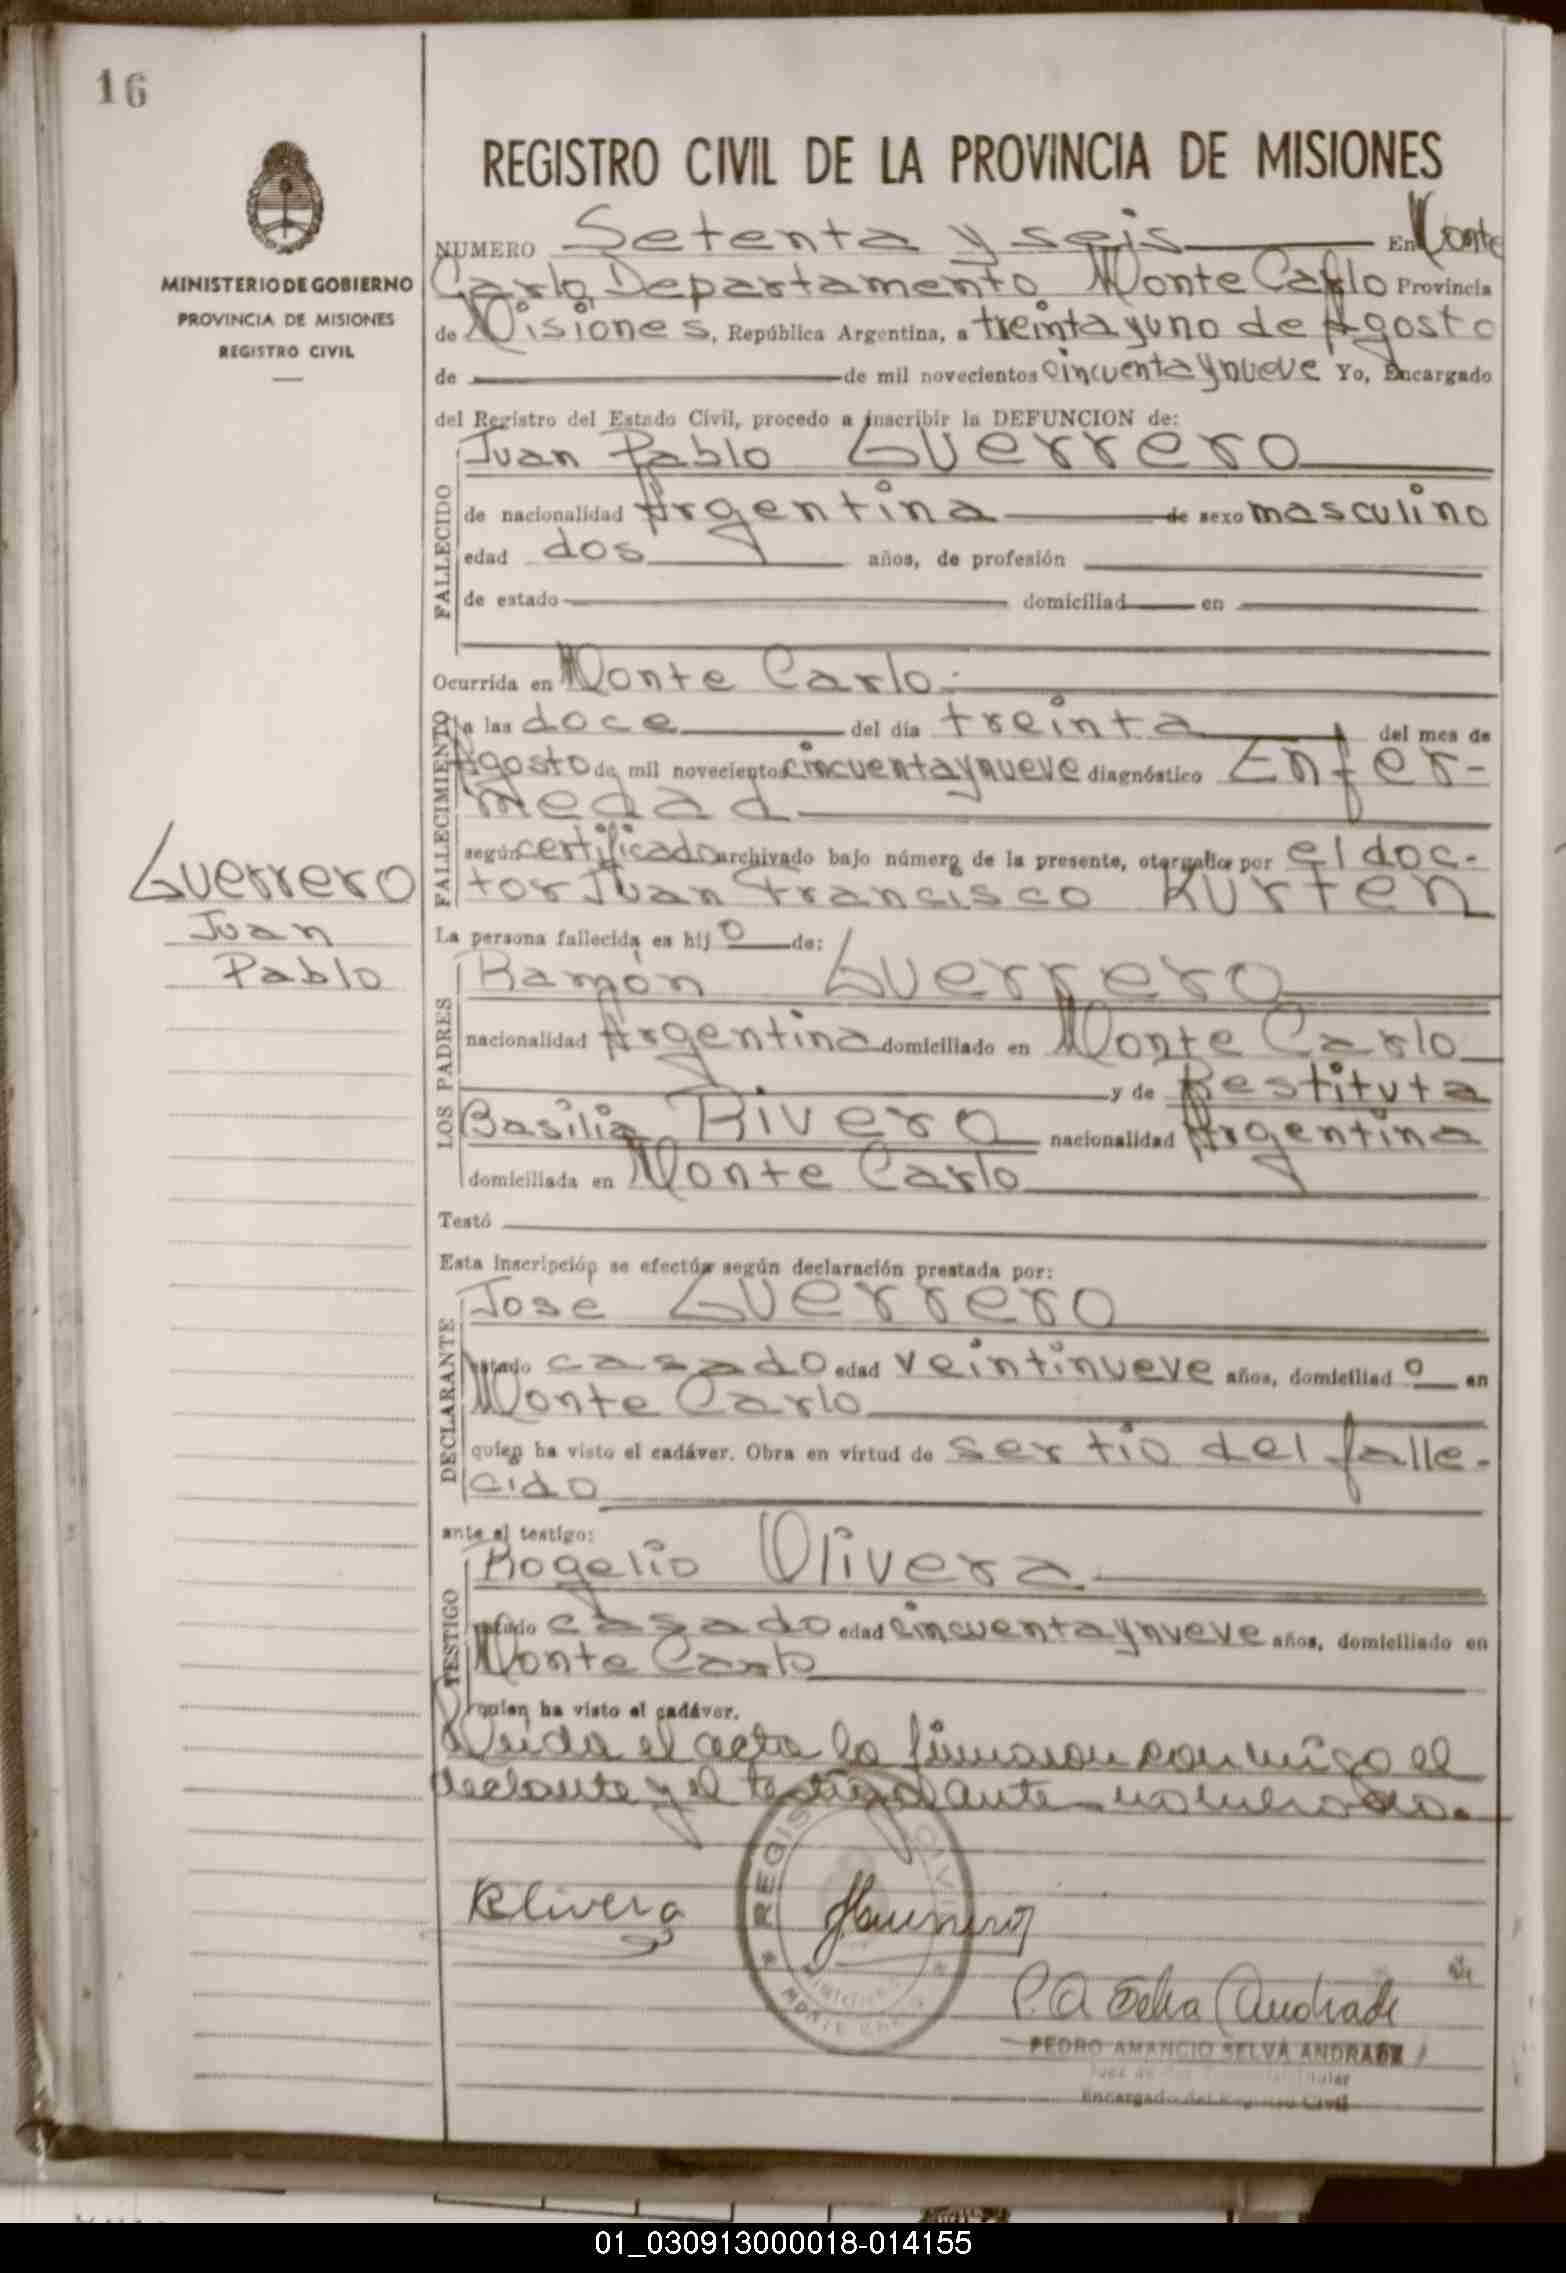 16
REGISTRO CIVIL DE LA PROVINCIA DE MISIONES
MINISTERIO DE GOBIERNO
PROVINCIA DE MISIONES
REGISTRO CIVIL
NUMERO Setenta y seis En Monte
Carlo, Departamento Monte Carlo Provincia
de Misiones, República Argentina, a treinta y uno de Agosto
de de mil novecientos cincuenta y nueve Yo, Encargado
del Registro del Estado Civil, procedo a inscribir la DEFUNCION de:
FALLECIDO
Juan Pablo Guerrero
de nacionalidad Argentina de sexo masculino
edad dos años, de profesión
de estado domiciliad en
Ocurrida en Monte Carlo.
FALLECIMIENTO
a las doce del día treinta del mes de
Agosto de mil novecientos cincuenta y nueve diagnóstico Enfer-
medad
según certificado archivado bajo número de la presente, otorgado por el doc-
tor Juan Francisco Kurten
Guerrero
Juan
Pablo
La persona fallecida es hijo de:
LOS PADRES
Ramón Guerrero
nacionalidad Argentina domiciliado en Monte Carlo
y de Restituta
Basilia Rivero nacionalidad Argentina
domiciliada en Monte Carlo
Testó
Esta inscripción se efectúa según declaración prestada por:
DECLARANTE
Jose Guerrero
estado casado edad veintinueve años, domiciliado en
Monte Carlo
quien ha visto el cadáver. Obra en virtud de ser tio del falle-
cido
ante el testigo:
TESTIGO
Rogelio Olivera
estado casado edad cincuenta y nueve años, domiciliado en
Monte Carlo
quien ha visto el cadáver.
Leida el acta la firmaron conmigo el
declante y el testigo ante nombrado.
ROlivera
REGISTRO CIVIL
MISIONES
MONTE CARLO
P.A Selva Andrade
PEDRO AMANCIO SELVA ANDRADE
Encargado del Registro Civil
01_030913000018-014155